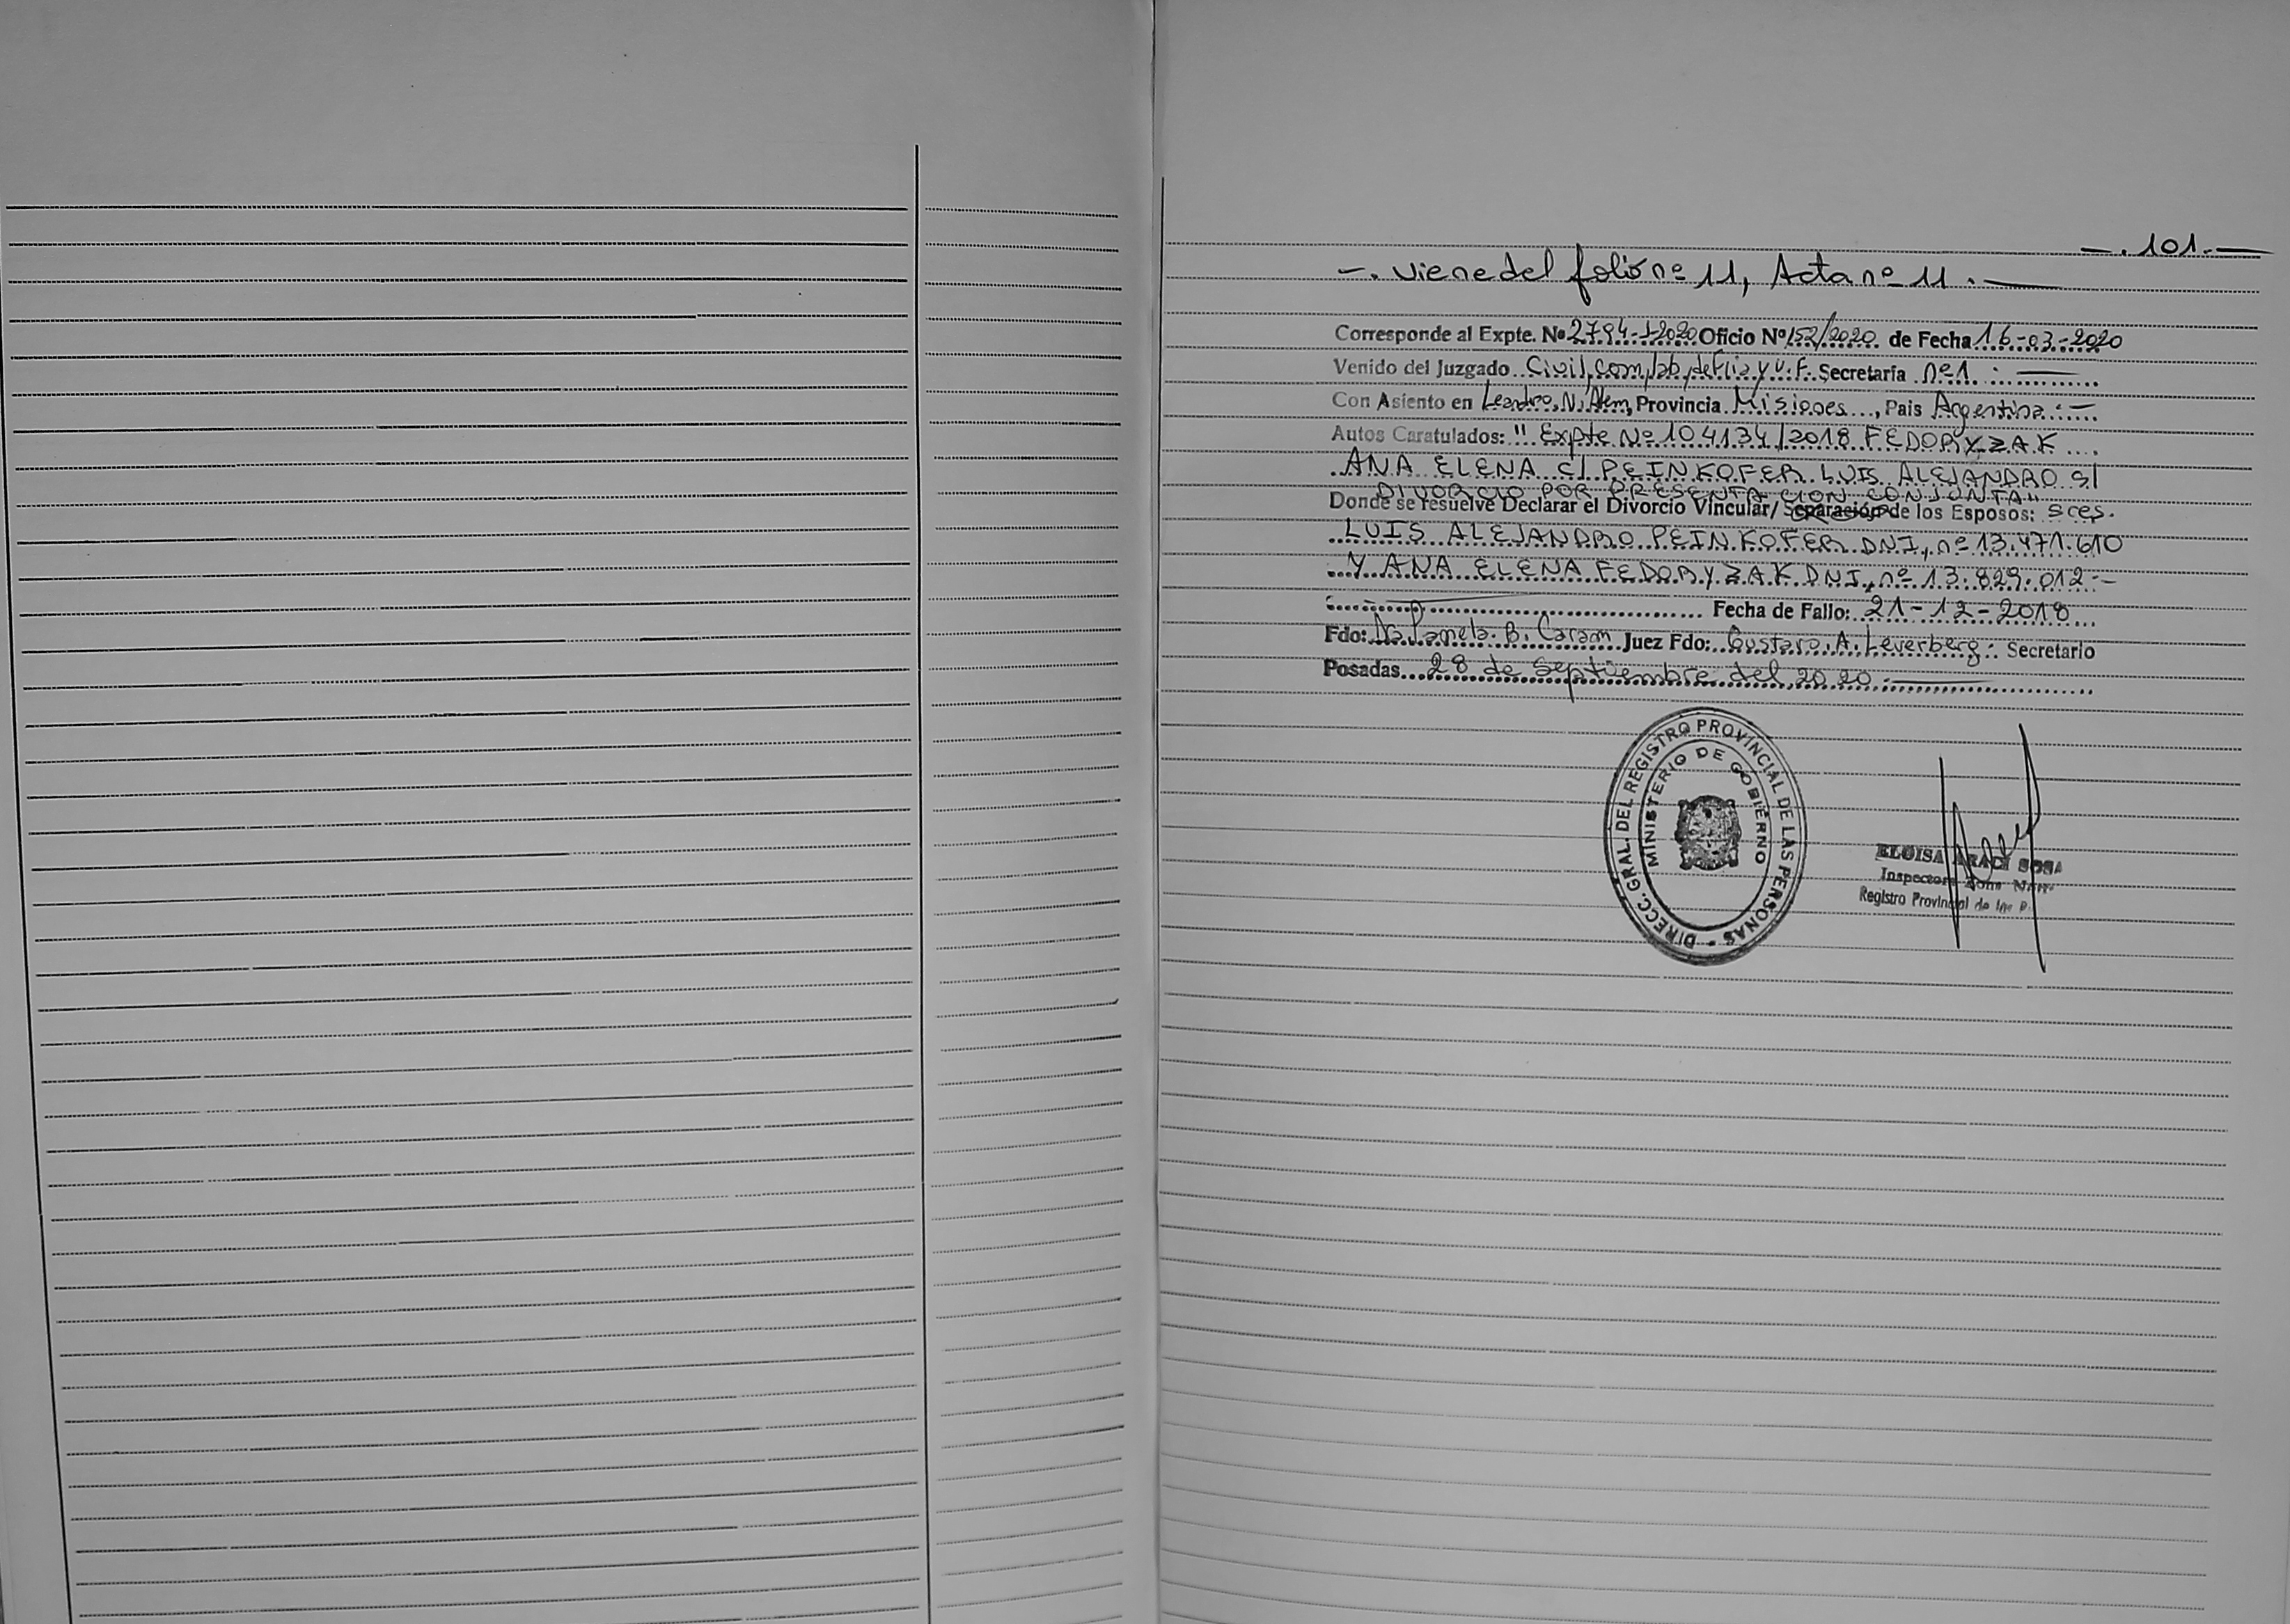 —. 101.—
—. viene del folio nº 11, Acta nº 11.—
Corresponde al Expte. Nº 2794-J-2020 Oficio Nº 152/2020 de Fecha 16-03-2020
Venido del Juzgado Civil, Com, lab, de Flia y V. F. Secretaría nº 1.—
Con Asiento en Leandro, N. Alem, Provincia Misiones, Pais Argentina.—
Autos Caratulados: "Expte Nº 104134/2018 FEDORYSZAK
ANA ELENA C/ PEINKOFER LUIS ALEJANDRO S/
DIVORCIO POR PRESENTACION CONJUNTA"
Donde se resuelve Declarar el Divorcio Vincular/ Separación de los Esposos: sres.
LUIS ALEJANDRO PEINKOFER DNI, nº 13.471.610
Y ANA ELENA FEDORYSZAK DNI, nº 13.829.012.—
Fecha de Fallo: 21-12-2018
Fdo: Dra Pamela. B. Caram Juez Fdo: Gustavo. A. Leverberg. Secretario
Posadas 28 de Septiembre del 2020.—
DIRECC. GRAL. DEL REGISTRO PROVINCIAL DE LAS PERSONAS -
MINISTERIO DE GOBIERNO
ELOISA ARACI SOSA
Inspectora Zona
Registro Provincial de las P